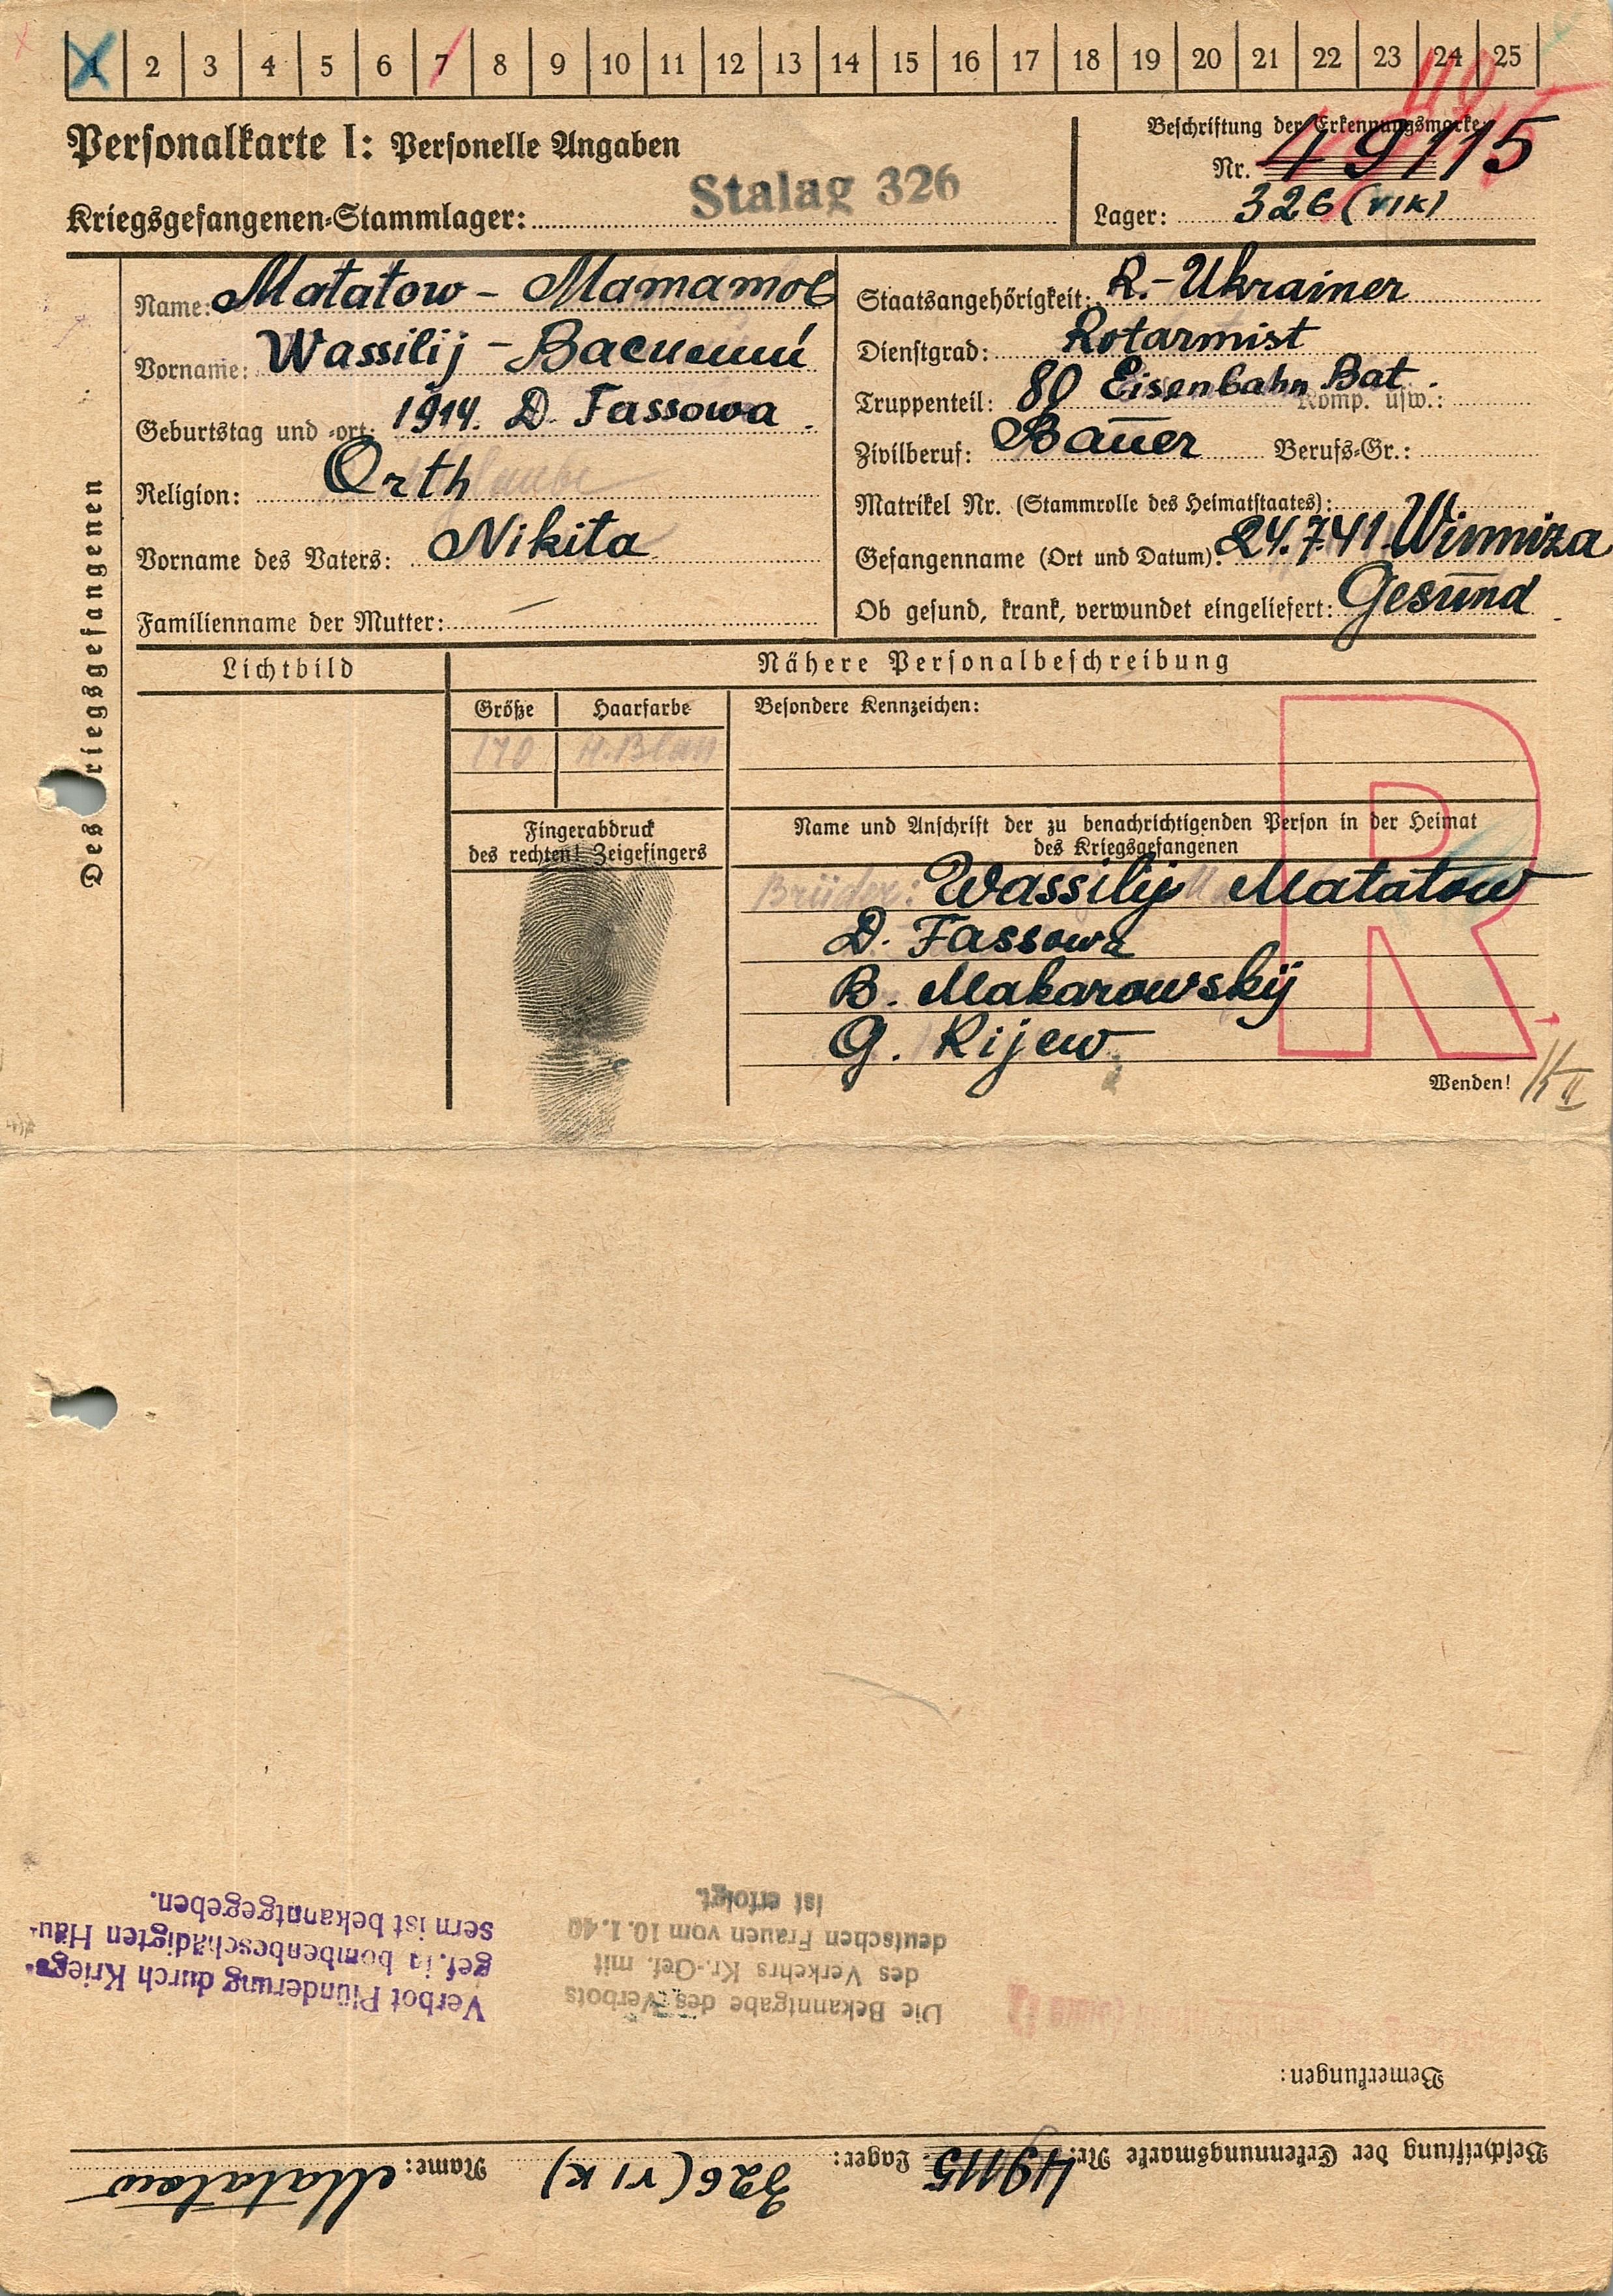 1 2 3 4 5 6 7 8 9 10 11 12 13 14 15 16 17 18 19 20 21 22 23 24 25
Personalkarte I: Personelle Angaben
Kriegsgefangenen-Stammlager: Stalag 326
Beschriftung der Erkennungsmarke
Nr. 49115
Lager: 326 (VIK)
Des Kriegsgefangenen
Name: Matatow - Мататов
Vorname: Wassilij - Василий
Geburtstag und -ort: 1914. D. Fassowa
Religion: Orth
Vorname des Vaters: Nikita
Familienname der Mutter: —
Staatsangehörigkeit: R.-Ukrainer
Dienstgrad: Rotarmist
Truppenteil: 80 Eisenbahn Bat. Komp. usw.:
Zivilberuf: Bauer Berufs-Gr.:
Matrikel Nr. (Stammrolle des Heimatstaates):
Gefangennahme (Ort und Datum): 24.7.41. Winniza
Ob gesund, krank, verwundet eingeliefert: Gesund
Lichtbild
Nähere Personalbeschreibung
Größe Haarfarbe
170
Besondere Kennzeichen:
Fingerabdruck
des rechten! Zeigefingers
Name und Anschrift der zu benachrichtigenden Person in der Heimat
des Kriegsgefangenen
Brüder: Wassilij Matatow
D. Fassowa
B. Makarowskij
G. Kijew
R
Wenden!
Beschriftung der Erkennungsmarke Nr. 49115 Lager: 326 (VI K) Name: Matatow
Bemerkungen:
Die Bekanntgabe des Verbots
des Verkehrs Kr.-Gef. mit
deutschen Frauen vom 10.1.40
ist erfolgt.
Verbot Plünderung durch Kriegs-
gef. in bombenbeschädigten Häu-
sern ist bekanntgegeben.